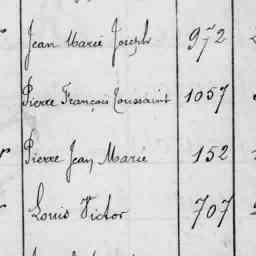 Jean Marie Joseph 972
Pierre François Toussaint 1057
Pierre Jean Marie 152
Louis Victor 707